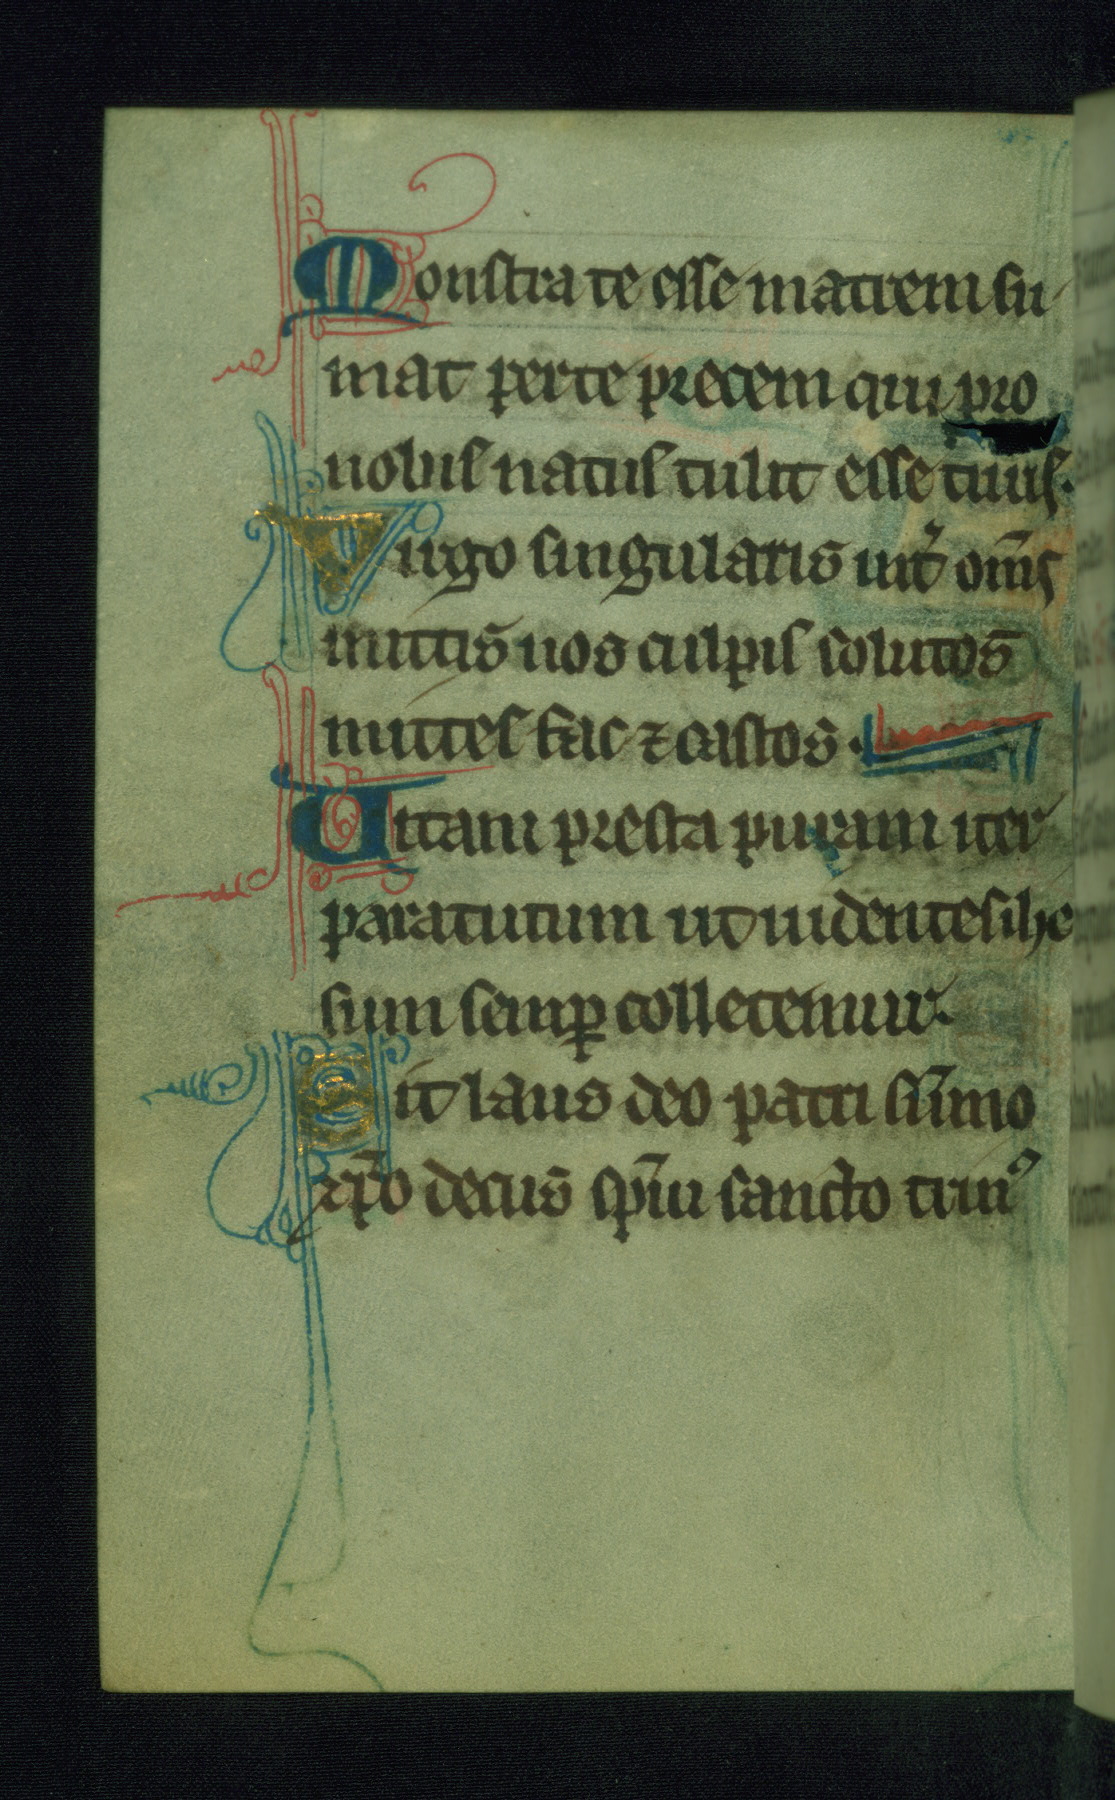 Monstra te esse matrem su
mat per te precem qui pro
nobis natus tulit esse tuus.
Uirgo singularis int̾ om̄s
mitis nos culpis solutos
mittes fac ⁊ castos.
Uitam presta puram iter
para tutum ut uidentes ihe
sum semꝑ colletemur.
Sit laus deo patri sūmo
xp̄o decus sp̄ui sancto trinꝰ